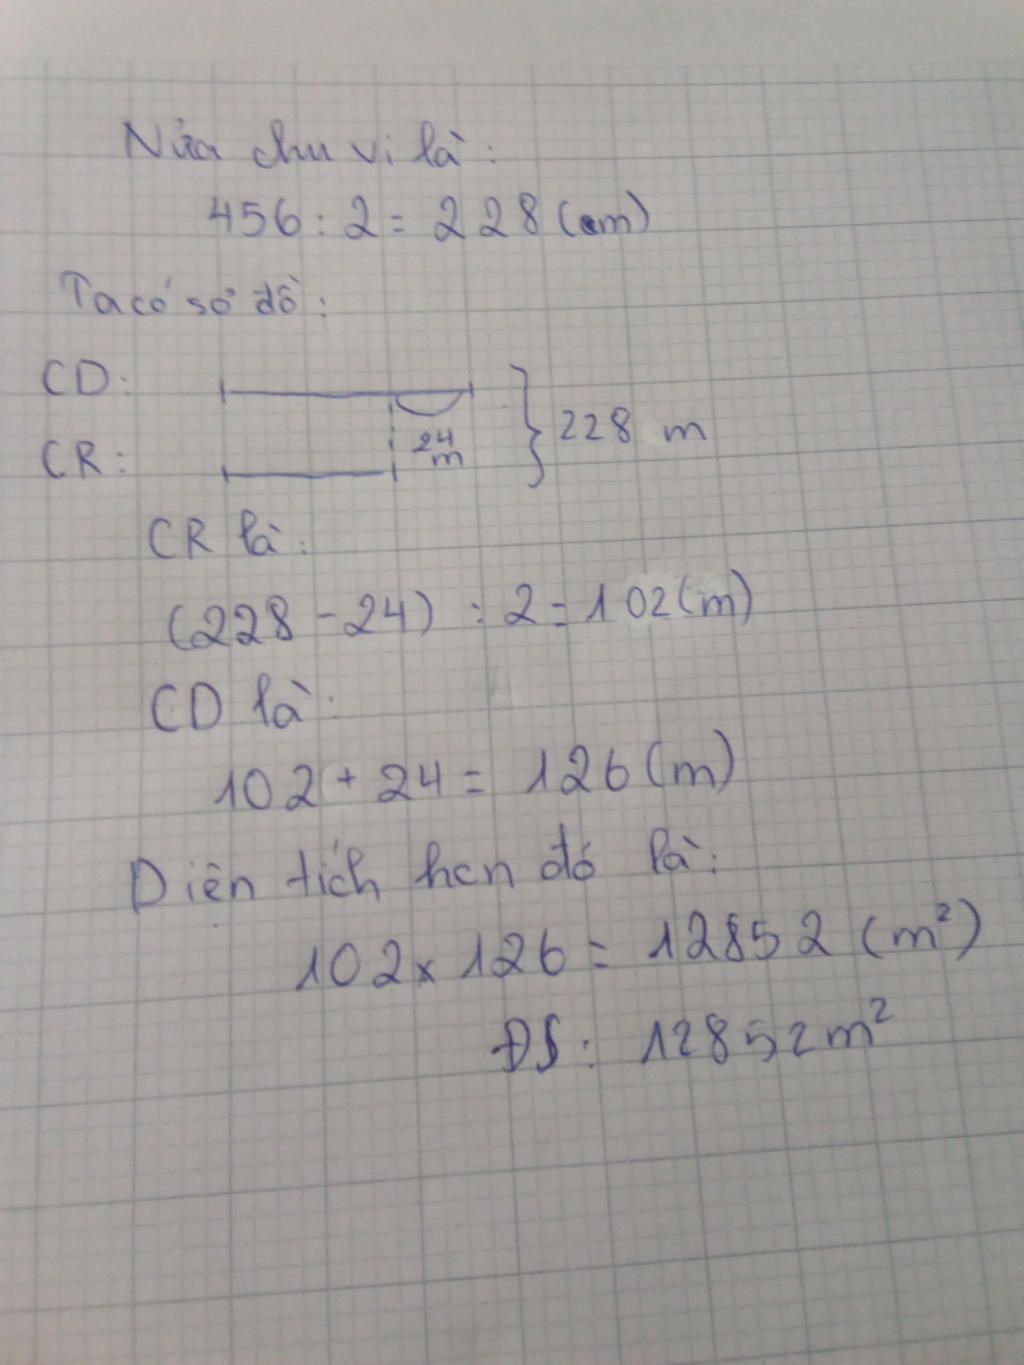 Nửa chu vi là:
456 : 2 = 228 (m)
Ta có sơ đồ:
CD:
24 m
228 m
CR:
CR là:
(228 - 24) : 2 = 102 (m)
CD là:
102 + 24 = 126 (m)
Diện tích hcn đó là:
102 x 126 = 12852 (m²)
ĐS: 12852 m²